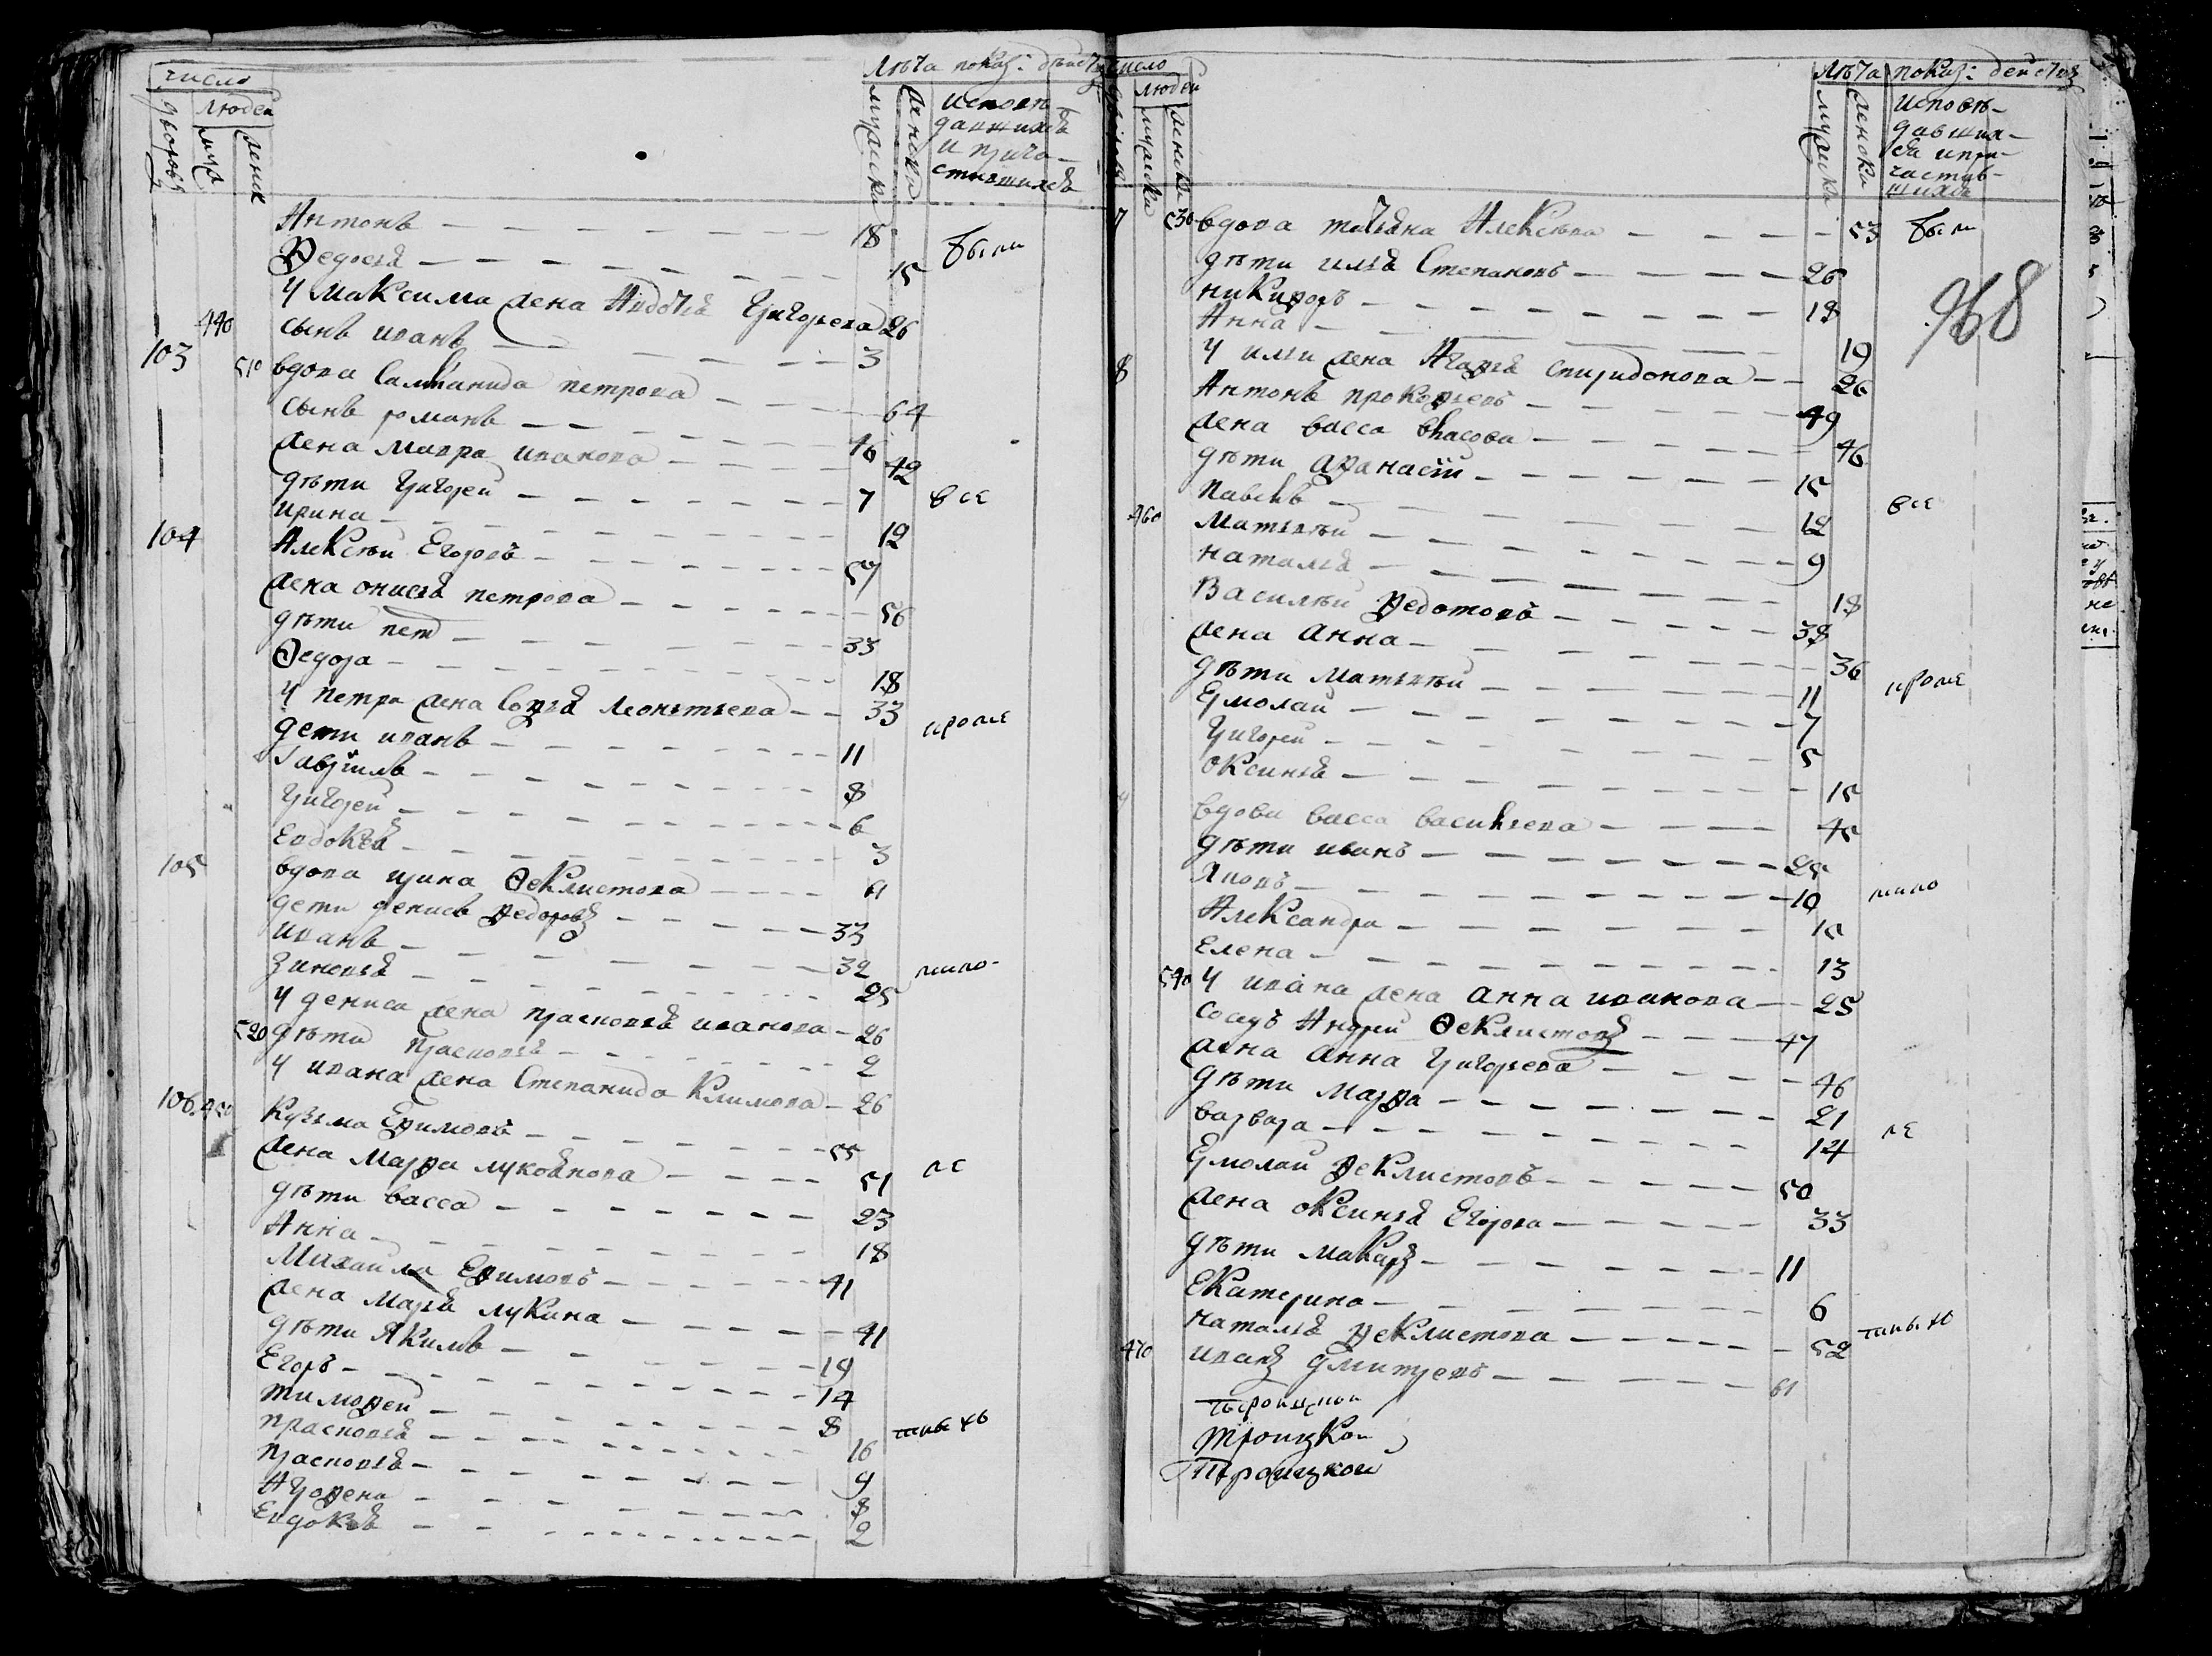 число
людей
дворовъ
муж
женск
Лѣта показ: дѣйст
мужски
женски
исповѣ
давшихся
и прича-
стившихся
Антонъ 18
Ѳедосья 15
были
У максима жена Авдотья Григорьева 26
440 сынъ иванъ 3
103 510 вдова Саламанида петрова 64
сынъ романъ 46
жена мавра иванова 42
дѣти Григореи 7
все
ирина 12
104 Алексѣи Егоровъ 57
жена онисья петрова 56
дѣти петръ 33
Ѳедора 18
У петра жена Софья Леонтьева 33
кроме
дети иванъ 11
Гаврiилъ 8
Григореи 6
Евдокѣя 3
105 вдова ирина Ѳеклистова 61
дети денисъ Ѳедоровъ 33
иванъ 32
Зиновья 25
У дениса жена прасковья иванова 26
520 дѣти прасковья 2
У ивана жена Степанида Климова 26
106 450 Кузьма Ефимовъ 55
жена Марфа луковнова 51
дѣти васса 23
Анна 18
Михаила Ефимовъ 41
жена Марья лукина 41
дѣти Якимъ 19
Егоръ 14
тимофеи 8
прасковья 16
прасковья 9
Афросена 8
Евдокѣя 2
число
людей
мужски
женски
Лѣта показ: дѣйств
мужски
женски
исповѣ-
давших-
ся и при-
частив-
шихся
7 530 вдова татьяна Алексѣева 53
были
дѣти илья Степановъ 26
никифоръ 18
968
Анна 19
У ильи жена Агафья Спиридонова 26
8 Антонъ прокофьевъ 49
жена васса власова 46
дѣти афанасiи 15
Павелъ 12
все
460 Матвѣи 9
наталья 18
Василѣи Ѳедотовъ 38
жена анна 36
дѣти матвѣи 11
кроме
Ермолаи 7
Григореи 5
оксинья 15
вдова васса васильева 45
дѣти иванъ 25
Яковъ 10
Александра 15
Елена 13
540 У ивана жена анна иванова 25
Соседъ Андреи Ѳеклистовъ 47
жена анна Григорьева 46
дѣти марфа 21
варвара 14
Ермолаи Ѳеклистовъ 50
жена оксинья Егорова 33
дѣти макаръ 11
Екатерина 6
наталья Ѳеклистова 52
470 иванъ дмитревъ 61
троицкои
Троицкои